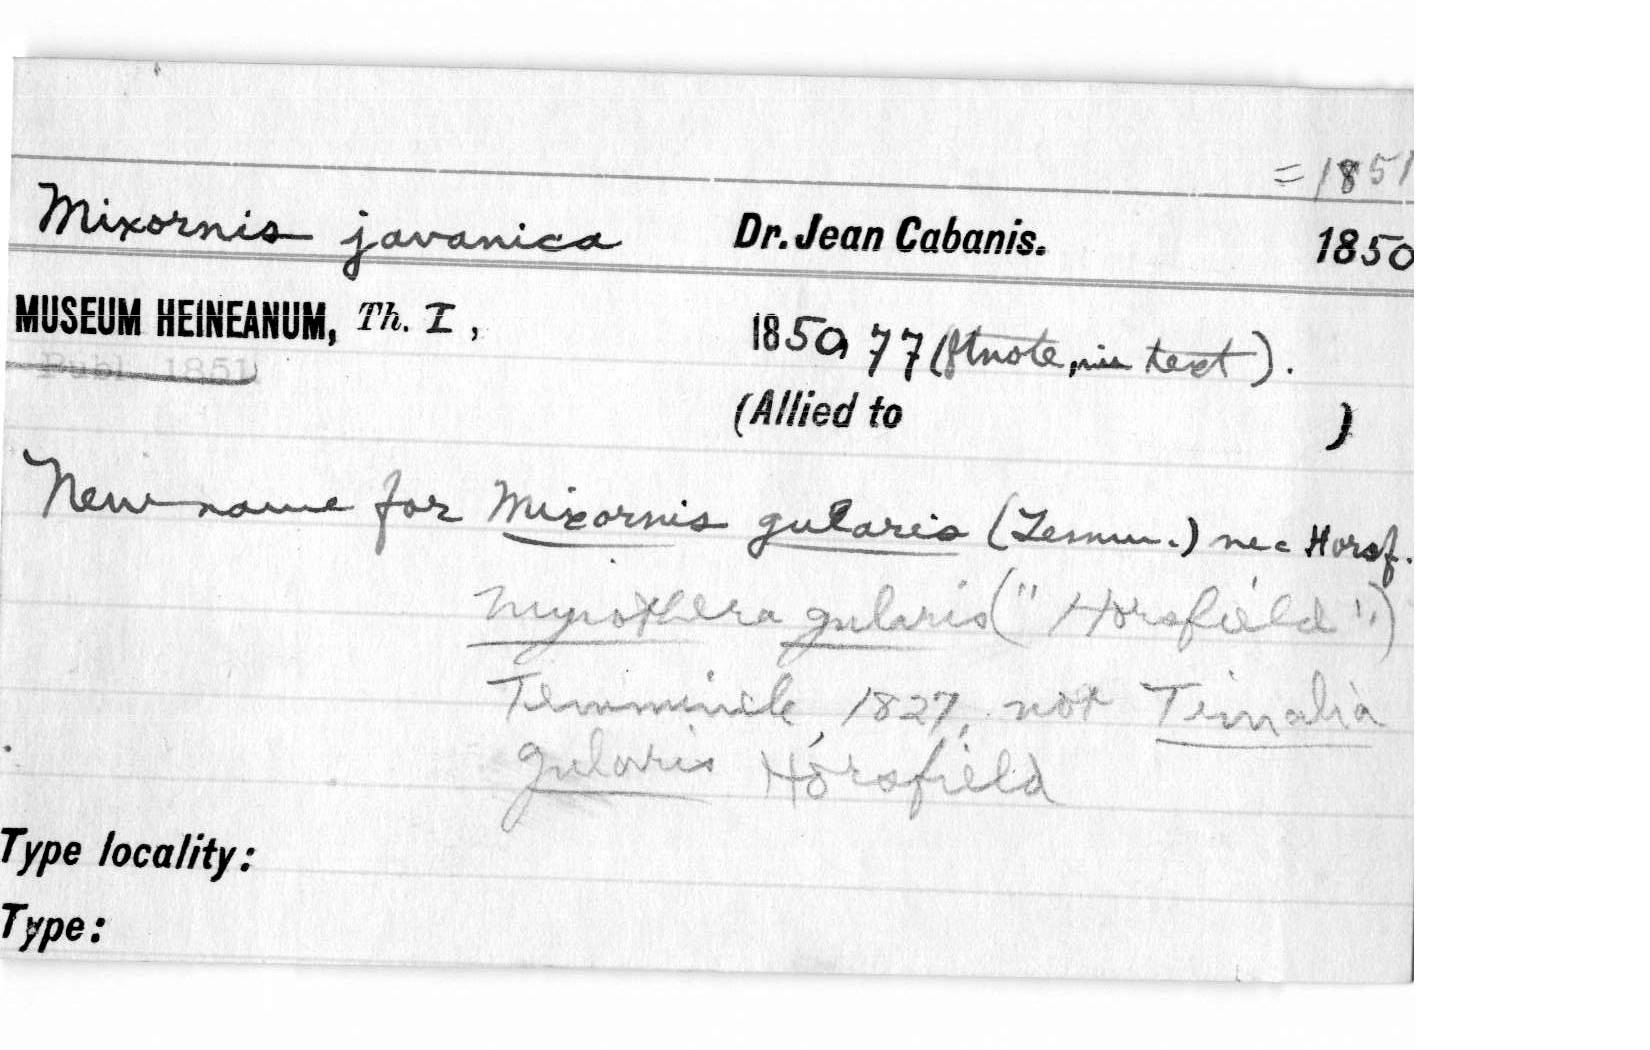 =1851
Mixornis javanica Dr. Jean Cabanis. 1850
MUSEUM HEINEANUM, Th. I, 1850, 77 (ftnote, in text).
Publ. 1851
(Allied to )
New name for Mixornis gularis (Temm.) nec Horsf.
Myiothera gularis ("Horsfield")
Temminck, 1827, not Timalia
gularis Horsfield
Type locality:
Type: